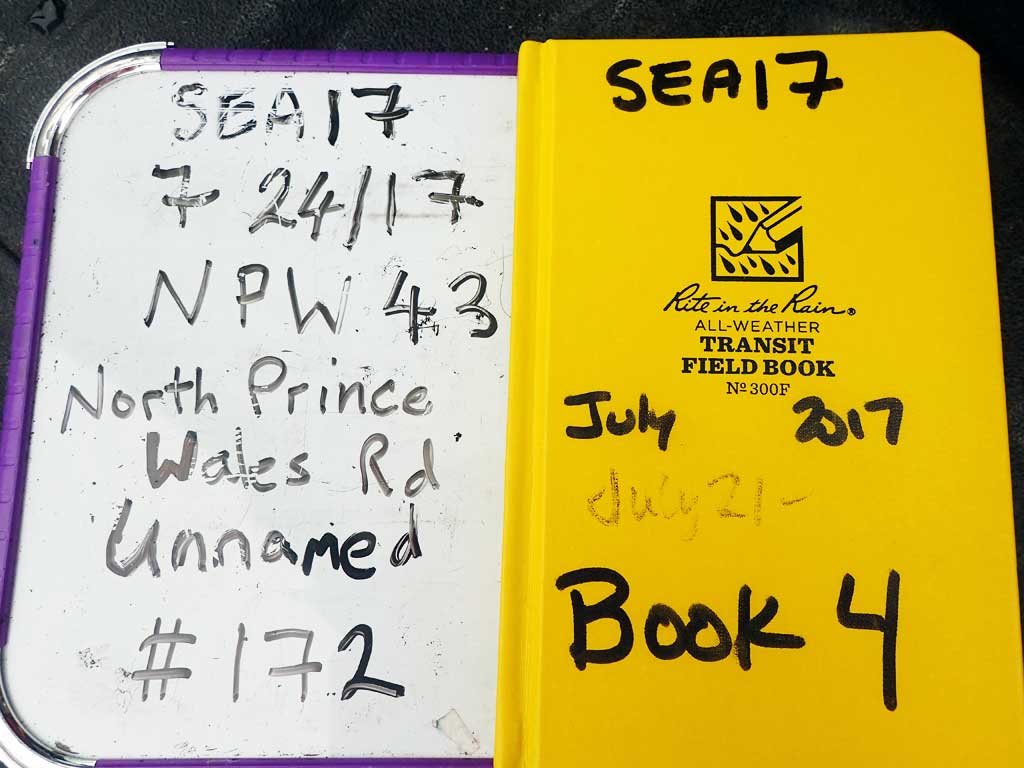 SEA17
7 24/17
NPW 43
North Prince
Wales Rd
Unnamed
#172
SEA17
Rite in the Rain®
ALL-WEATHER
TRANSIT
FIELD BOOK
Nº 300F
July 2017
July 21-
Book 4